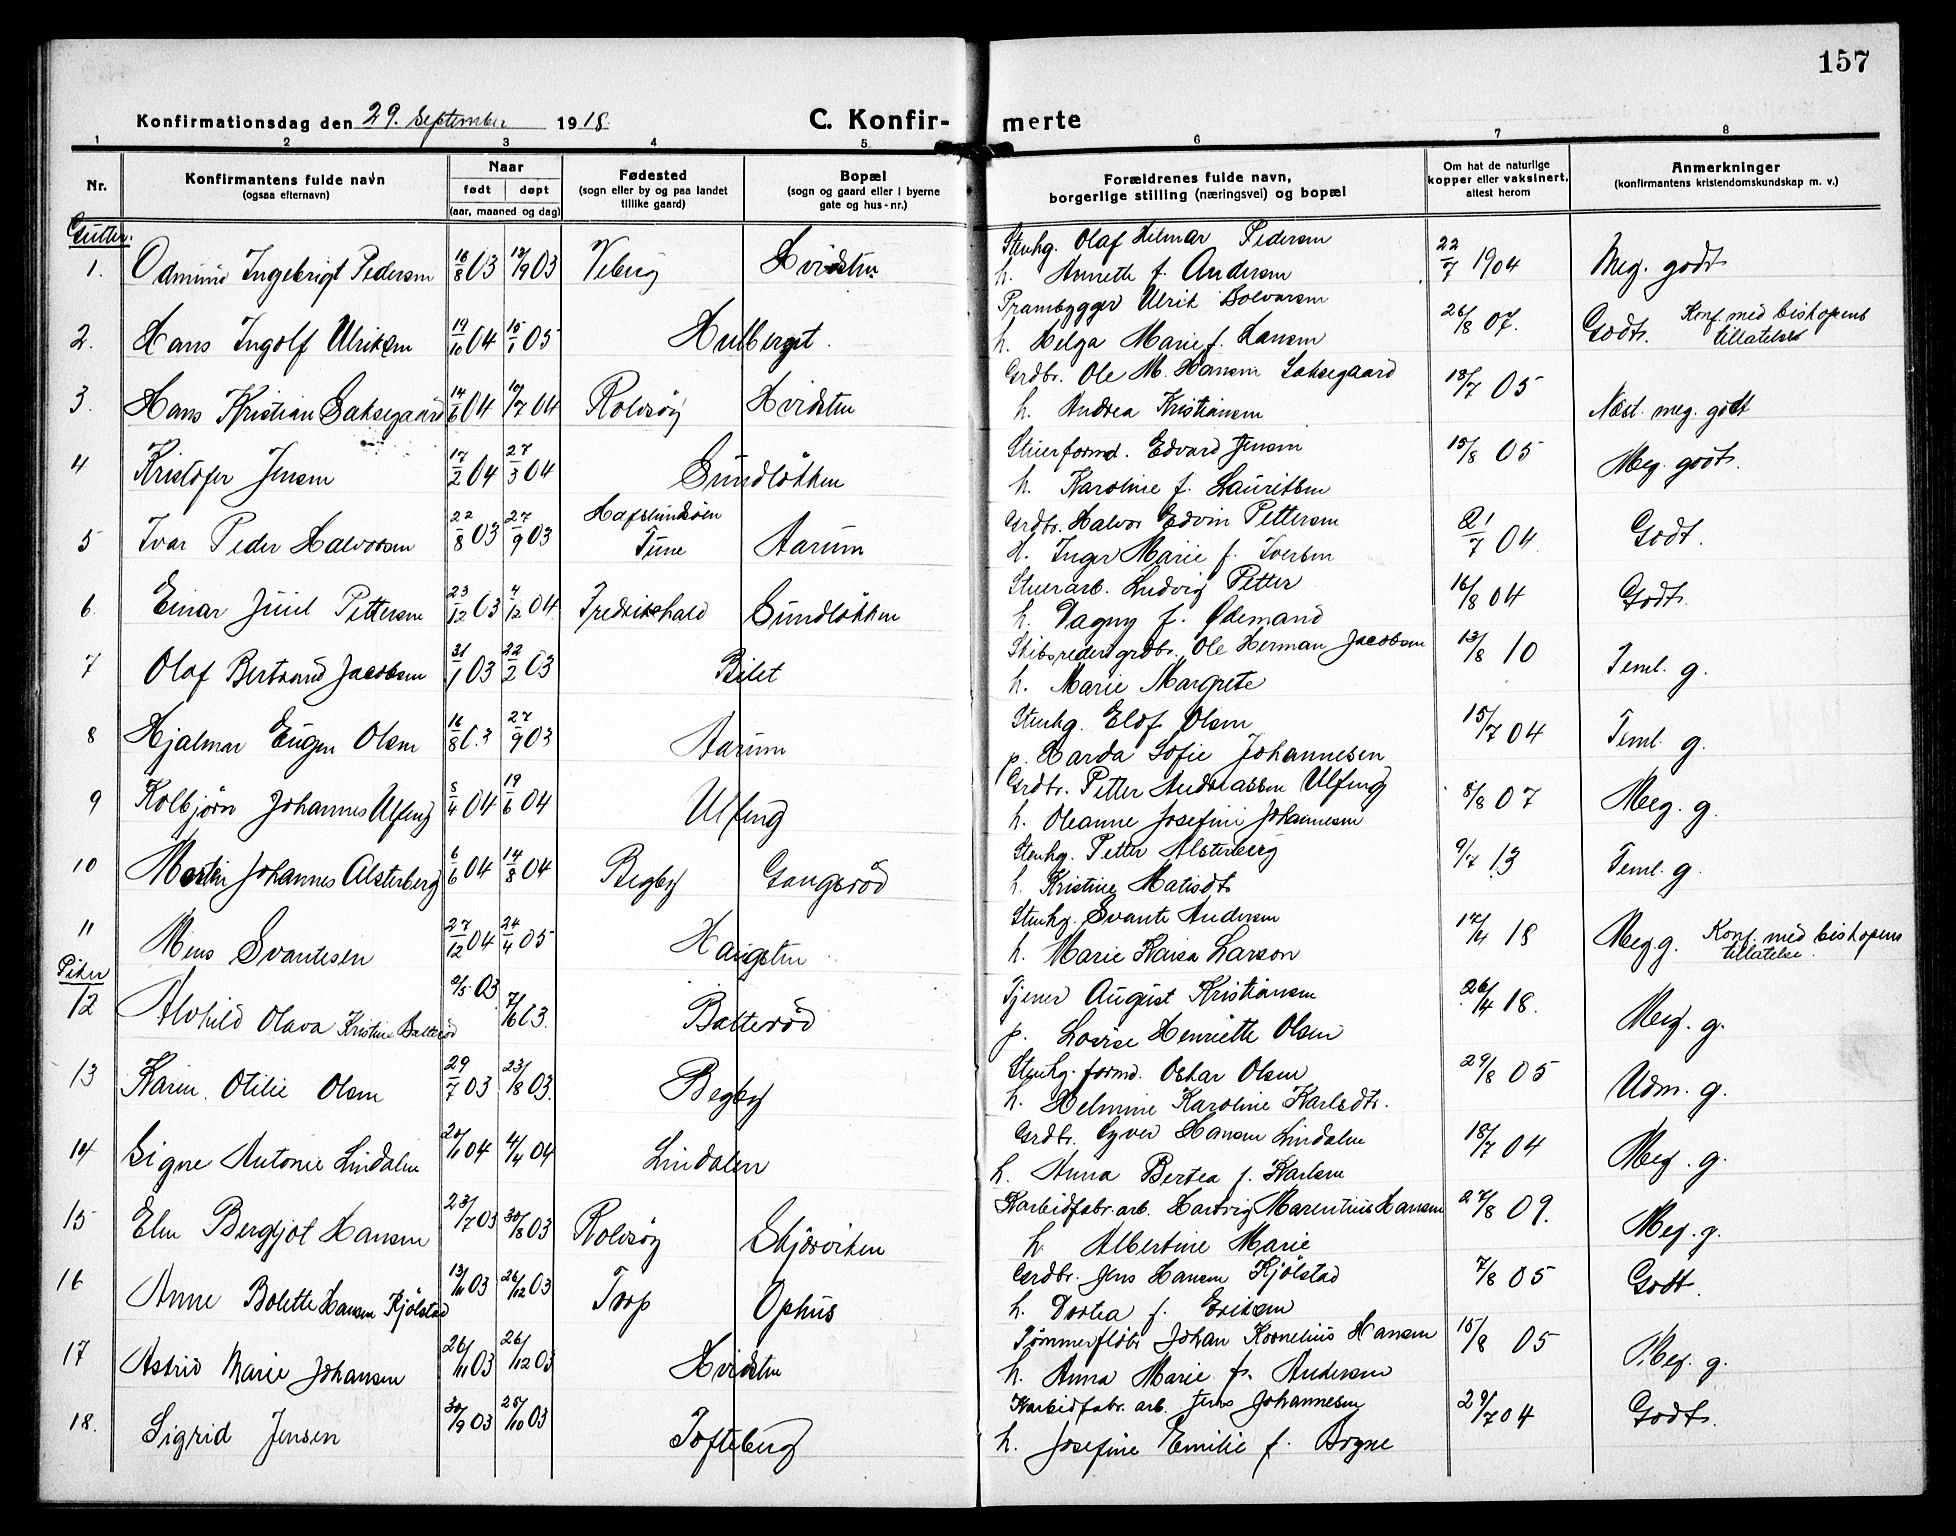 157
Konfirmationsdag den 29. September 1918. C. Konfirmerte
1 2 3 4 5 6 7 8
Nr. Konfirmantens fulde navn (ogsaa efternavn) Naar født døpt (aar, maaned og dag) Fødested (sogn eller by og paa landet tillike gaard) Bopæl (sogn og gaard eller i byerne gate og hus-nr.) Forældrenes fulde navn, borgerlige stilling (næringsvei) og bopæl Om hat de naturlige kopper eller vaksinert, attest herom Anmerkninger (konfirmantens kristendomskundskap m. v.)
Gutter.
1. Odmund Ingebrigt Pedersen 16/8 03 13/9 03 Hvidsten Stenhg. Olaf Hilmar Pedersen 22/7 1904 Meg. godt
h. Annette f. Andersen
2. Hans Ingolf Ulriksen 19/10 04 15/1 05 Prambygger Ulrik 26/8 07. Godt. Konf. med bishopens tillatelse
h. Helga Marie f. Hansen
3. Hans Kristian Saksegaard 14/6 04 17/7 04 Rolvsöy Hvidsten Grdbr. Ole M. Hansen Saksegaard 18/7 05 Næst. meg. godt
h. Andrea Kristiansen
4 Kristofer Jensen 17/2 04 27/3 04 Sundlökken Stuerformd. Edvard Jensen 15/8 05 Meg. godt.
h. Karoline f. Lauritsen
5 Ivar Peder Halvorsen 22/8 03 27/9 03 Hafslundsöen Tune Aarum Grdbr. Halvor Edvin Pettersen 21/7 04. Godt.
h. Inger Marie f. Iversen
6. Einar Juul Pettersen 23/12 03 4/12 04. Fredrikshald Sundlökken Stuerarb. Ludvig Petter 16/8 04 Godt.
h. Dagny f. Ödemand
7 Olaf Bertrand Jacobsen 31/1 03 22/2 03 Bilet Skibsreder grdbr. Ole Herman Jacobsen 13/8 10 Teml. g.
h. Marie Margrete
8 Hjalmar Eugen Olsen 16/8 03 27/9 03 Aarum Stenhg. Elof Olsen 15/7 04 Teml. g.
p. Harda Sofie Johannesen
9 Kolbjörn Johannes Ulfeng 5/4 04 19/6 04 Ulfeng Grdbr. Petter Andreassen Ulfeng 8/8 07 Meg. g.
h. Oleanne Josefine Johannesen
10 Martin Johannes Alsterberg 6/6 04 14/8 04 Begby Gangeröd Stenhg. Petter Alsterberg 9/7 13 Teml. g.
h. Kristine Matisdt.
11 Mens Svantesen 27/12 04 24/4 05 Haugsten Stenhg. Svante Andersen 17/4 18 Meg g. Konf. med bishopens tillatelse.
h. Marie Kaisa Larson
Piker
12 Alvhild Olava Kristine Batteröd 2/5 03 7/6 03. Batteröd Tjener August Kristiansen 26/4 18. Meg. g.
p. Lovise Henriette Olsen
13 Karen Otilie Olsen 29/7 03 23/8 03. Begby Stenhg. formd. Oskar Olsen 29/8 05 Udm. g.
h. Helmine Karoline Karlsdt.
14 Signe Antonie Lindalen 20/1 04 4/4 04 Lindalen Grdbr. Syver Hansen Lindalen 18/7 04 Meg. g.
h. Anna Bertea f. Karlsen
15 Elen Bergljot Hansen 23/7 03 30/8 03 Rolvsöy Skjærviken Karbidfabr. arb. Hartvig Marentius Hansen 27/8 09. Meg. g.
h. Albertine Marie
16 Anne Bolette Hansen Kjölstad 13/11 03 26/12 03 Torp Ophus Grdbr. Jens Hansen Kjölstad 7/8 05 Godt.
h. Dortea f. Eriksen
17 Astrid Marie Johansen 26/11 03 26/12 03 Hvidsten Tömmerflöter Johan Kornelius Hansen 15/8 05 Meg. g.
h. Anna Marie f. Andersen
18. Sigrid Jensen 30/9 03 25/10 03 Tofteberg Karbidfabr. arb. Jens Johannesen 29/7 04 Godt.
h. Josefine Emilie f. Brynе